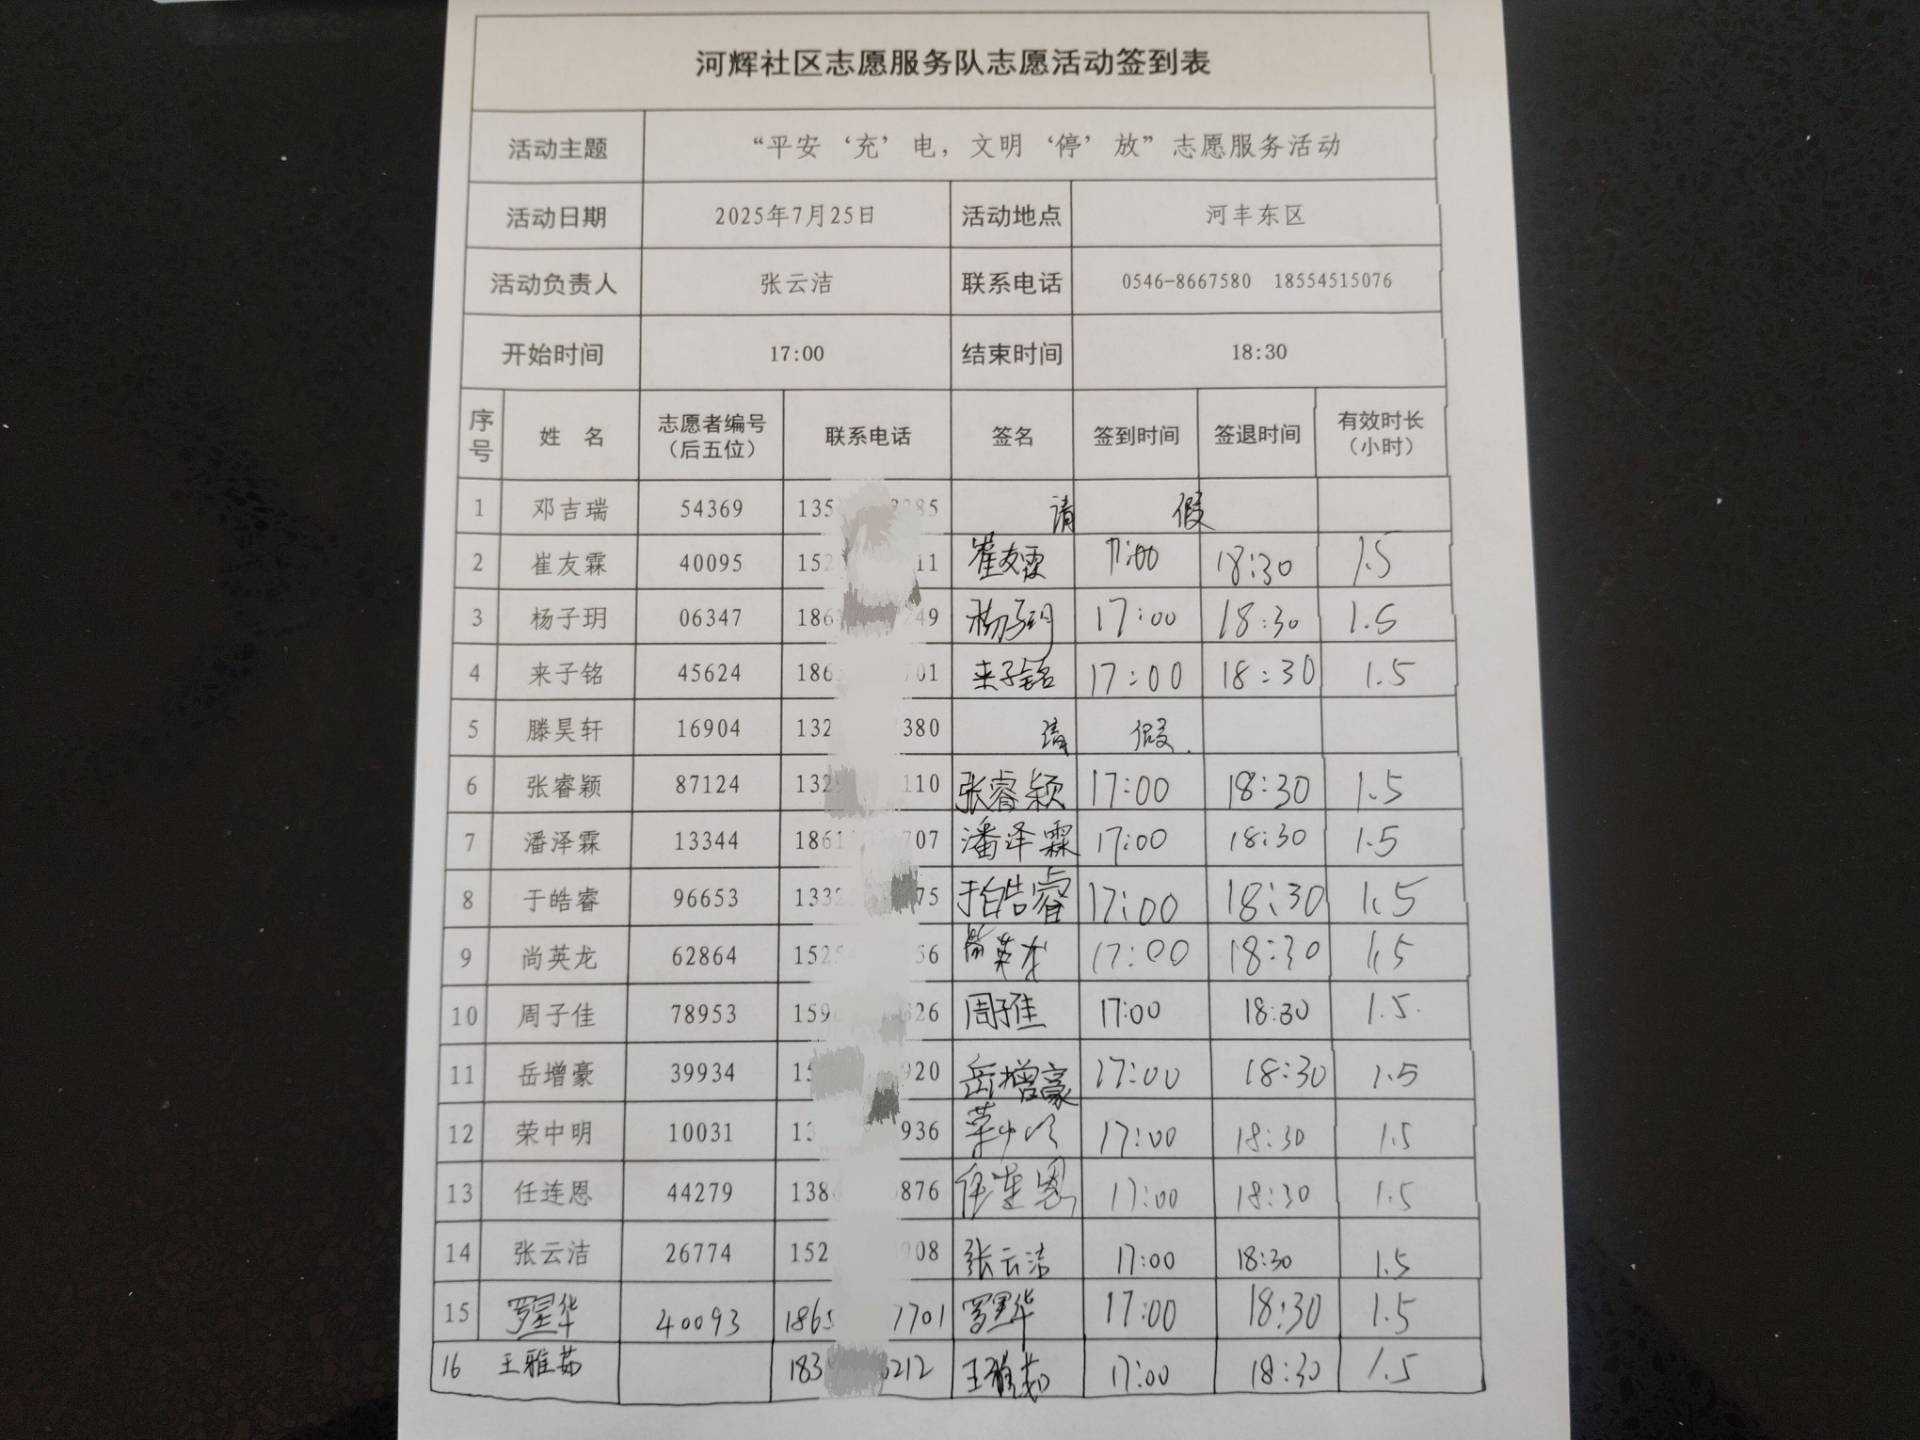 河辉社区志愿服务队志愿活动签到表
活动主题 “平安‘充’电，文明‘停’放”志愿服务活动
活动日期 2025年7月25日 活动地点 河丰东区
活动负责人 张云洁 联系电话 0546-8667580 18554515076
开始时间 17:00 结束时间 18:30
序号 姓 名 志愿者编号（后五位） 联系电话 签名 签到时间 签退时间 有效时长（小时）
1 邓吉瑞 54369 135 85 请 假
2 崔友霖 40095 152 11 崔友霖 17:00 18:30 1.5
3 杨子玥 06347 186 249 杨子玥 17:00 18:30 1.5
4 来子铭 45624 186 701 来子铭 17:00 18:30 1.5
5 滕昊轩 16904 132 380 请 假.
6 张睿颖 87124 132 110 张睿颖 17:00 18:30 1.5
7 潘泽霖 13344 1861 707 潘泽霖 17:00 18:30 1.5
8 于皓睿 96653 133 75 于皓睿 17:00 18:30 1.5
9 尚英龙 62864 152 56 尚英龙 17:00 18:30 1.5
10 周子佳 78953 159 626 周子佳 17:00 18:30 1.5.
11 岳增豪 39934 15 920 岳增豪 17:00 18:30 1.5
12 荣中明 10031 13 936 荣中明 17:00 18:30 1.5
13 任连恩 44279 138 876 任连恩 17:00 18:30 1.5
14 张云洁 26774 152 908 张云洁 17:00 18:30 1.5
15 罗星华 40093 1865 7701 罗星华 17:00 18:30 1.5
16 王雅茹 183 212 王雅茹 17:00 18:30 1.5